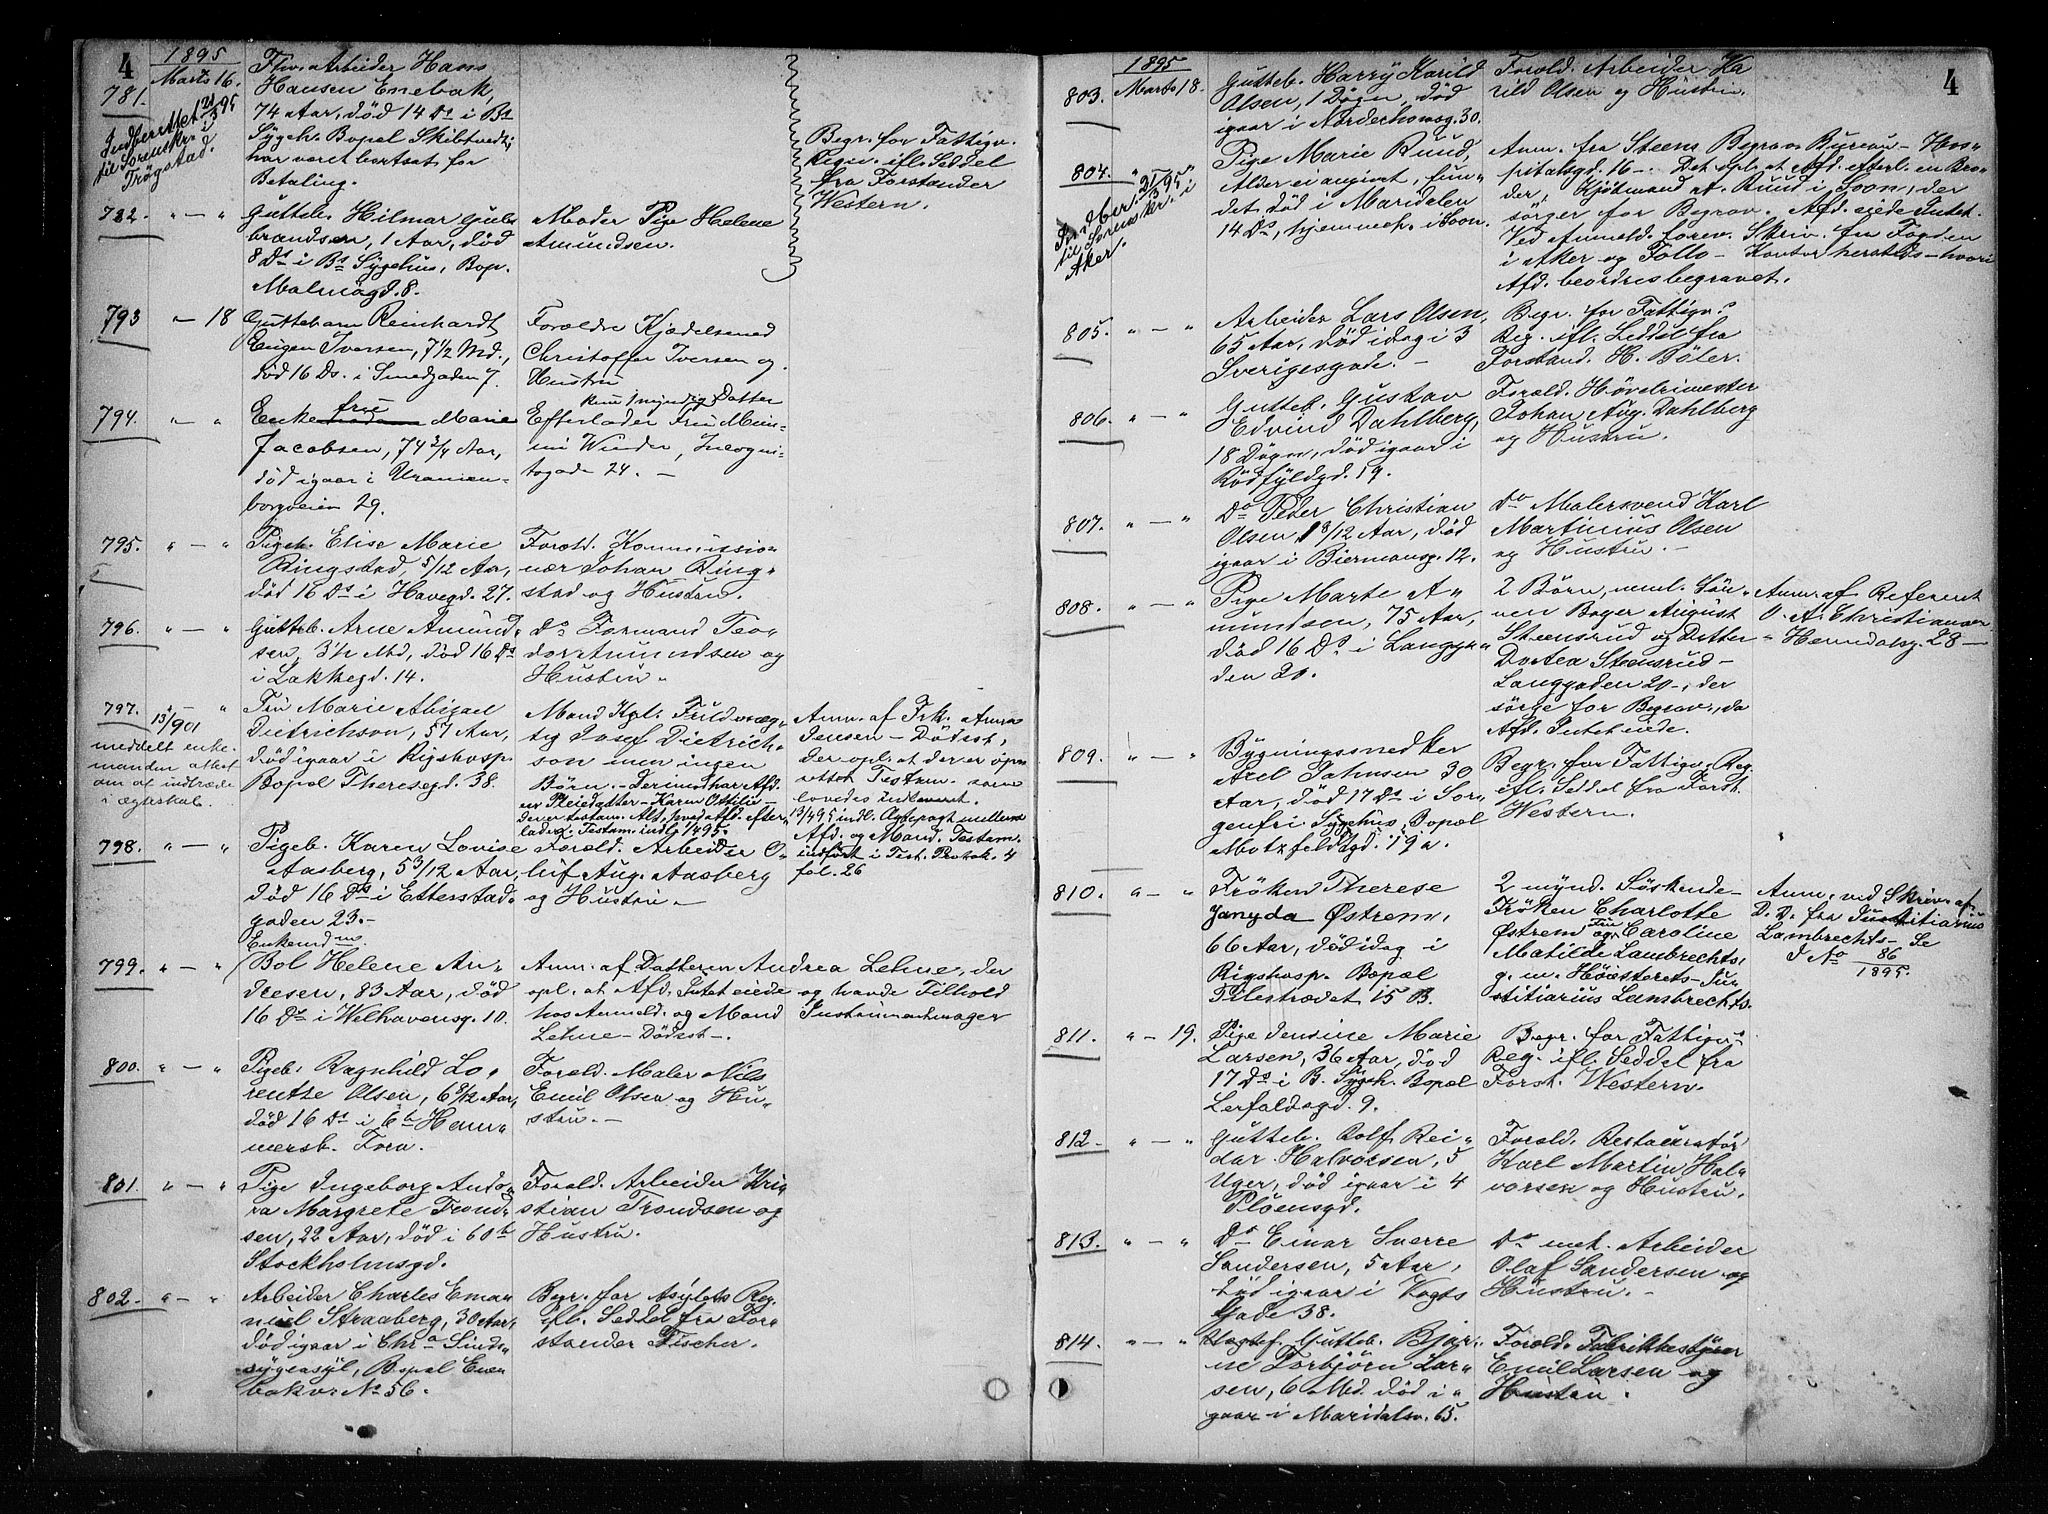 4
1895
Marts 16.
781.
Indberettet 21/3 95
til Sorenskr. i
Trøgstad.
Fhv. Arbeider Hans
Hansen Enebak,
74 Aar, død 14 Ds i Bs
Sygeh. Bopæl Skibtvedt;
har været bortsat for
Betaling.
Begr. for Fattigv.
Regn. ifl. Seddel
fra Forstander
Western.
782. " — "
Gutteb. Hilmar Gul-
brandsen, 1 Aar, død
8 Ds i Bs Sygehus, Bop.
Malmøgd. 8.
Moder Pige Helene
Amundsen.
793 " — 18
Guttebarn Reinhardt
Eugen Iversen, 7 1/2 Md.,
død 16 Ds. i Smedgaden 7.
Forældre Kjedelsmed
Christoffer Iversen og
Hustru
794. " — "
Enkefrue Marie
Jacobsen, 74 3/4 Aar,
død igaar i Uranien-
borgveien 29.
kun 1 myndig Datter
Efterlader Fru Mim-
mi Winder, Incogni-
togade 24. —
795. " — "
Pigeb. Elise Marie
Ringstad, 5/12 Aar,
død 16 Ds i Havegd. 27.
Foræld. Kommissio-
nær Johan Ring-
stad og Hustru.
796. " — "
Gutteb. Arne Amund-
sen, 3 1/2 Md, død 16 Ds
i Lakkegd. 14.
Ds Formand Teo-
dor Amundsen og
Hustru "
797. " — "
13/ 901
meddelt enke-
manden attest
om at indtræde
i ægteskab.
Fru Marie Abigael
Dietrichson, 57 Aar,
død igaar i Rigshosp.
Bopæl Theresegd. 38.
Mand Kgl. Fuldmæg-
tig Josef Dietrich-
son men ingen
Børn. — Derimod har Afd.
en Pleiedatter — Karen Ottilie —
der er testam. Alt, hvad Afd. efter-
lader. Testam. indl. 1/4 95.
Anm. af Frk. Anna
Jensen — Dødsst.,
der opl. at der er opr-
ettet Testam. som
lovedes indleveret.
13/4 95 indl. Ægtepagt mellem
Afd. og Mand. Testam.
indført i Test. Protok. 4
fol. 26
798. " — "
Pigeb. Karen Lovise
Aasberg, 5 3/12 Aar,
død 16 Ds i Etterstad-
gaden 23. —
Foræld. Arbeider O-
luf Aug. Aasberg
og Hustru. —
799. " — "
Enkemdm.
Bol Helene An-
dresen, 83 Aar, død
16 Ds i Welhavensg. 10.
Anm. af Datteren Andrea Lehne, der
opl. at Afd. Intet eiede og havde Tilhold
hos Anmeld. og Mand Instrumentmager
Lehne — Dødsst —.
800. " — "
Pigeb. Ragnhild Lo-
rentze Olsen, 6 8/12 Aar,
død 16 Ds i 6b Ham-
mersb. Torv.
Foræld. Maler Nils
Emil Olsen og Hu-
stru. —
801. " — "
Pige Ingeborg Ando-
ra Margrete Trond-
sen, 22 Aar, død i 60b
Stockholmsgd.
Foræld. Arbeider Kri-
stian Trondsen og
Hustru.
802. " — "
Arbeider Charles Ema-
nuel Straaberg, 30 Aar,
død igaar i Chra Sinds-
sygeasyl, Bopæl Ene-
bakv. No 56.
Begr. for Asylets Reg.
ifl. Seddel fra For-
stander Fischer.
4
1895
803. Marts 18.
Gutteb. Harry Harild
Olsen, 1 Døgn, død
igaar i Nordechowsg. 30.
Foræld. Arbeider Ha
rild Olsen og Hustru.
804. " — "
Indber. 21/3 95
til Sorenskr. i
Aker.
Pige Marie Rund,
Alder ei angivet, fun-
det død i Maridalen
14 Ds, hjemmeh. i Soon.
Anm. fra Steens Begrav. Bureau — Hos-
pitalsgd. 16 —. Det opl. at Afd. efterl. en Bro-
der, Kjøbmand af Rund i Soon, der
sørger for Begrav. Afd. eiede Intet.
Ved Anmeld. forev. Skriv. fra Fogden
i Aker og Follo — Kontor hersteds — hvori
Afd. beordres begravet.
805. " — "
Arbeider Lars Olsen,
65 Aar, død idag i 3
Sverigesgade. —
Begr. for Fattigv.s
Reg. ifl. Seddel fra
Forstand. H. Bøler.
806. " — "
Gutteb. Gustav
Edvind Dahlberg,
18 Døgn, død igaar i
Rødfyldgd. 19.
Foræld. Høvlerimester
Johan Aug. Dahlberg
og Hustru.
807. " — "
Do Peder Christian
Olsen, 1 8/12 Aar, død
igaar i Biermansg. 12.
Do Malersvend Karl
Martinius Olsen
og Hustru. —
808. " — "
Pige Marte A-
mundsen, 75 Aar,
død 16 Ds i Langga-
den 20.
2 Børn, neml. Søn-
nen Bager August
Steensrud og Datter
Dortea Steensrud —
Langgaden 20 —, der
sørge for Begrav., da
Afd. Intet eiede.
Anm. af Referent
O. A. Christiansen
— Herredalsg. 28 —
809. " — "
Bygningssnedker
Axel Jahnsen 30
Aar, død 17 Ds i Sor-
genfri Sygehus, Bopæl
Motzfeldtsgd. 19a.
Begr. for Fattigv. Reg.
ifl. Seddel fra Forst.
Western.
810. " — "
Frøken Therese
Janyda Østrem,
66 Aar, død idag i
Rigshosp. Bopæl
Pilestrædet 15 B.
2 mynd. Søskende —
Frøken Charlotte
Østrem og Fru Caroline
Matilde Lambrechts,
g. m. Høiesterets-Ju-
stitiarius Lambrechts.
Anm. ved Skriv. af
D. D. fra Justitiarius
Lambrechts — Se
J No 86
1895.
811. " — 19.
Pige Jensine Marie
Larsen, 36 Aar, død
17 Ds i B. Sygeh. Bopæl
Lerfaldsgd. 9.
Begr. for Fattigv.s
Reg. ifl. Seddel fra
Forst. Western.
812. " — "
Gutteb. Rolf Rei-
dar Halvorsen, 5
Uger, død igaar i 4
Pløensgd.
Foræld. Restauratør
Karl Martin Hal-
vorsen og Hustru.
813. " — "
Do Einar Sverre
Sandersen, 5 Aar,
død igaar i Vogts
Gade 38.
Do mek. Arbeider
Olaf Sandersen og
Hustru. —
814. " — "
Uægtef. Gutteb. Bjar-
ne Torbjørn Lar-
sen, 6 Md. død i-
gaar i Maridalsv. 65.
Foræld. Fabrikbestyrer
Emil Larsen og
Hustru.